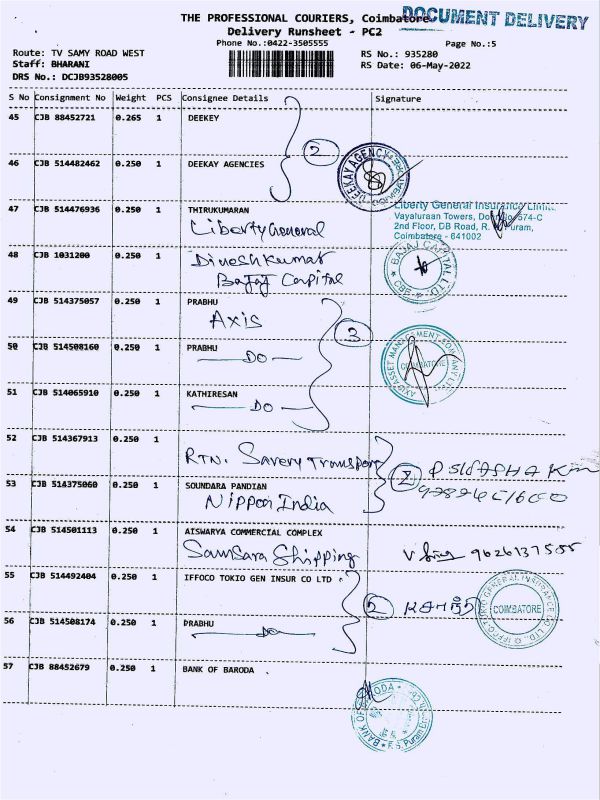 THE PROFESSIONAL COURIERS, Coimbatore
DOCUMENT DELIVERY
Delivery Runsheet - PC2
Phone No.:0422-3505555
Page No.:5
Route: TV SAMY ROAD WEST
RS No.: 935280
Staff: BHARANI
RS Date: 06-May-2022
DRS No.: DCJB93528005
S No Consignment No Weight PCS Consignee Details Signature
45 CJB 88452721 0.265 1 DEEKEY
2
46 CJB 514482462 0.250 1 DEEKAY AGENCIES
DEEKAY AGENCY
47 CJB 514476936 0.250 1 THIRUKUMARAN
Liberty General
Liberty General Insurance
Vayaluraan Towers, 574-C
2nd Floor, DB Road, R. Puram,
Coimbatore - 641002
48 CJB 1031200 0.250 1 Dinesh Kumar
Bajaj Capital
BAJAJ CAPITAL LTD.
CBE
49 CJB 514375057 0.250 1 PRABHU
Axis
3
50 CJB 514508160 0.250 1 PRABHU
DO
AXIS ASSET MANAGEMENT COMPANY LTD.
COIMBATORE
51 CJB 514065910 0.250 1 KATHIRESAN
DO
52 CJB 514367913 0.250 1
RTN. Savery Transport
2
53 CJB 514375060 0.250 1 SOUNDARA PANDIAN
Nippon India
54 CJB 514501113 0.250 1 AISWARYA COMMERCIAL COMPLEX
Samsara Shipping
55 CJB 514492404 0.250 1 IFFOCO TOKIO GEN INSUR CO LTD
2
IFFCO-TOKIO GENERAL INSURANCE CO. LTD.
COIMBATORE
56 CJB 514508174 0.250 1 PRABHU
DO
57 CJB 88452679 0.250 1 BANK OF BARODA
BANK OF BARODA
R.S. Puram